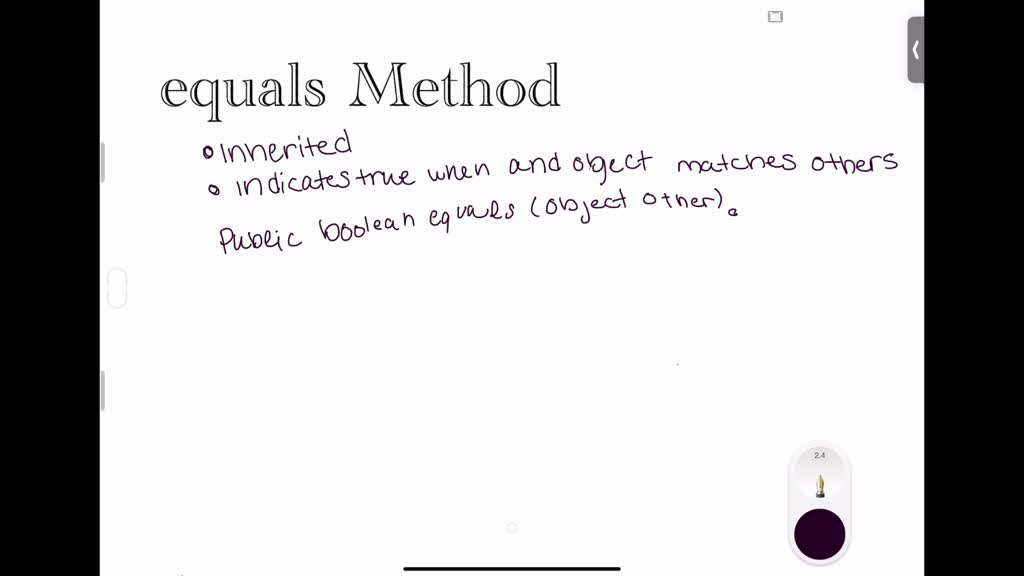 equals Method
• Inherited
• indicates true when and object matches others
Public boolean equals (object other).
2.4